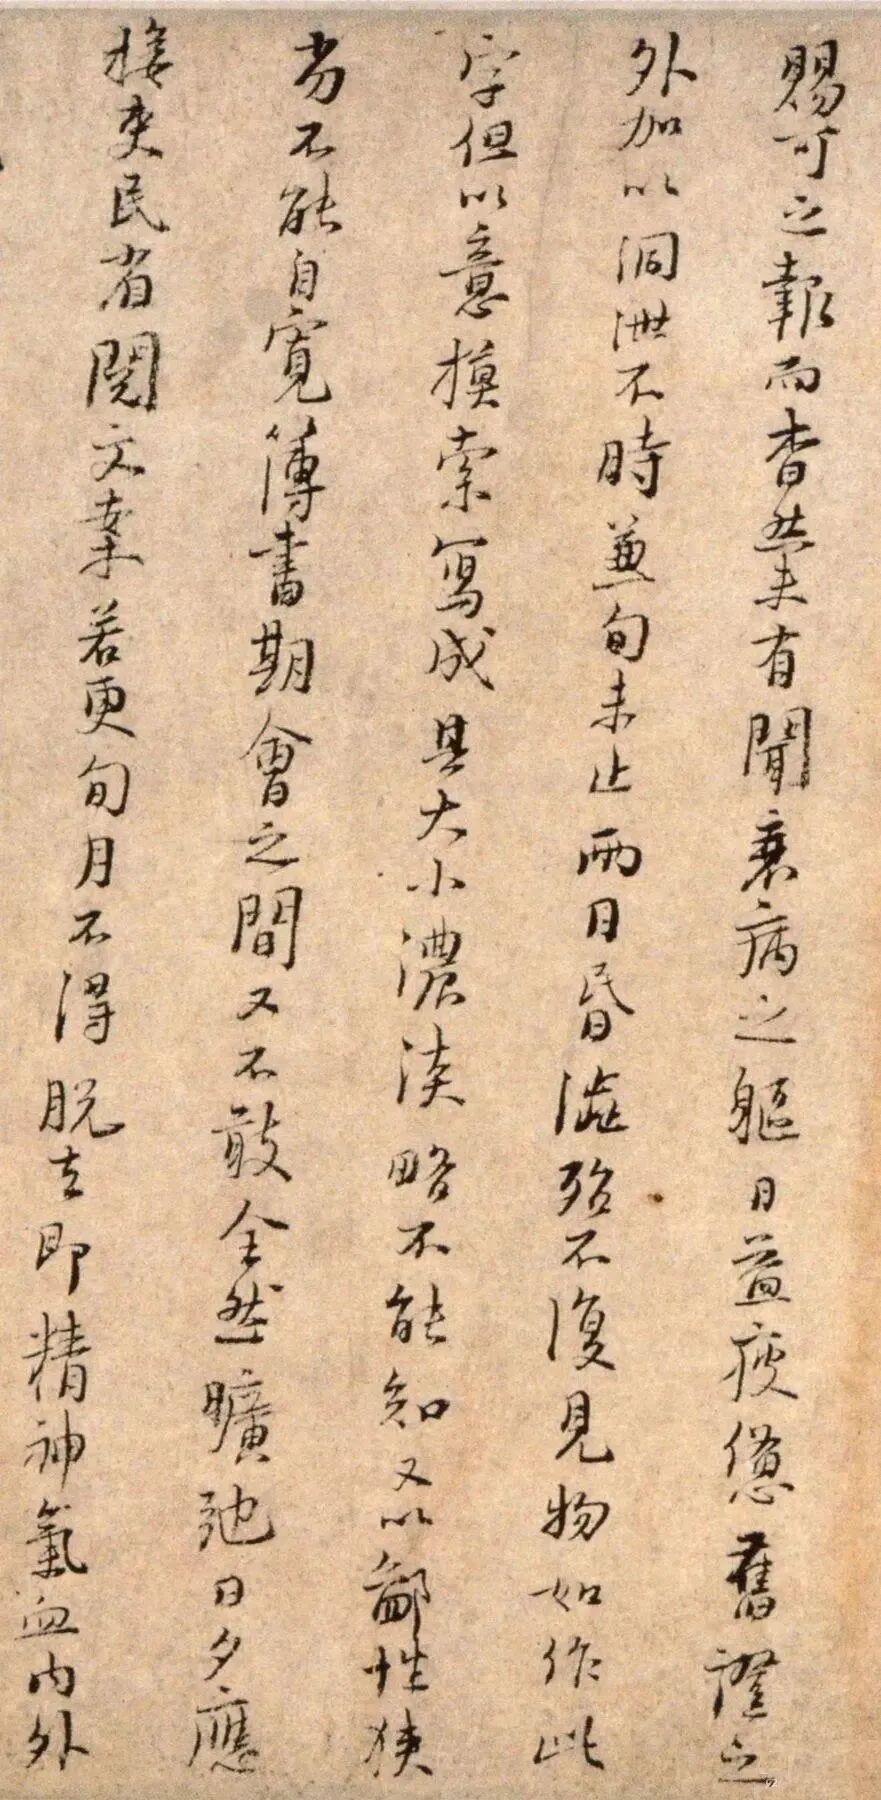 賜可之報而杳然未有聞衰病之軀日益疲憊舊證之
外加以洞泄不時兼旬未止兩日昏澁殆不復見物如作此
字但以意摸索寫成其大小濃淡略不能知又以鄙性狹
劣不能自寬簿書期會之間又不敢全然曠弛日夕應
接吏民省閱文案若更旬月不得脫去即精神氣血內外